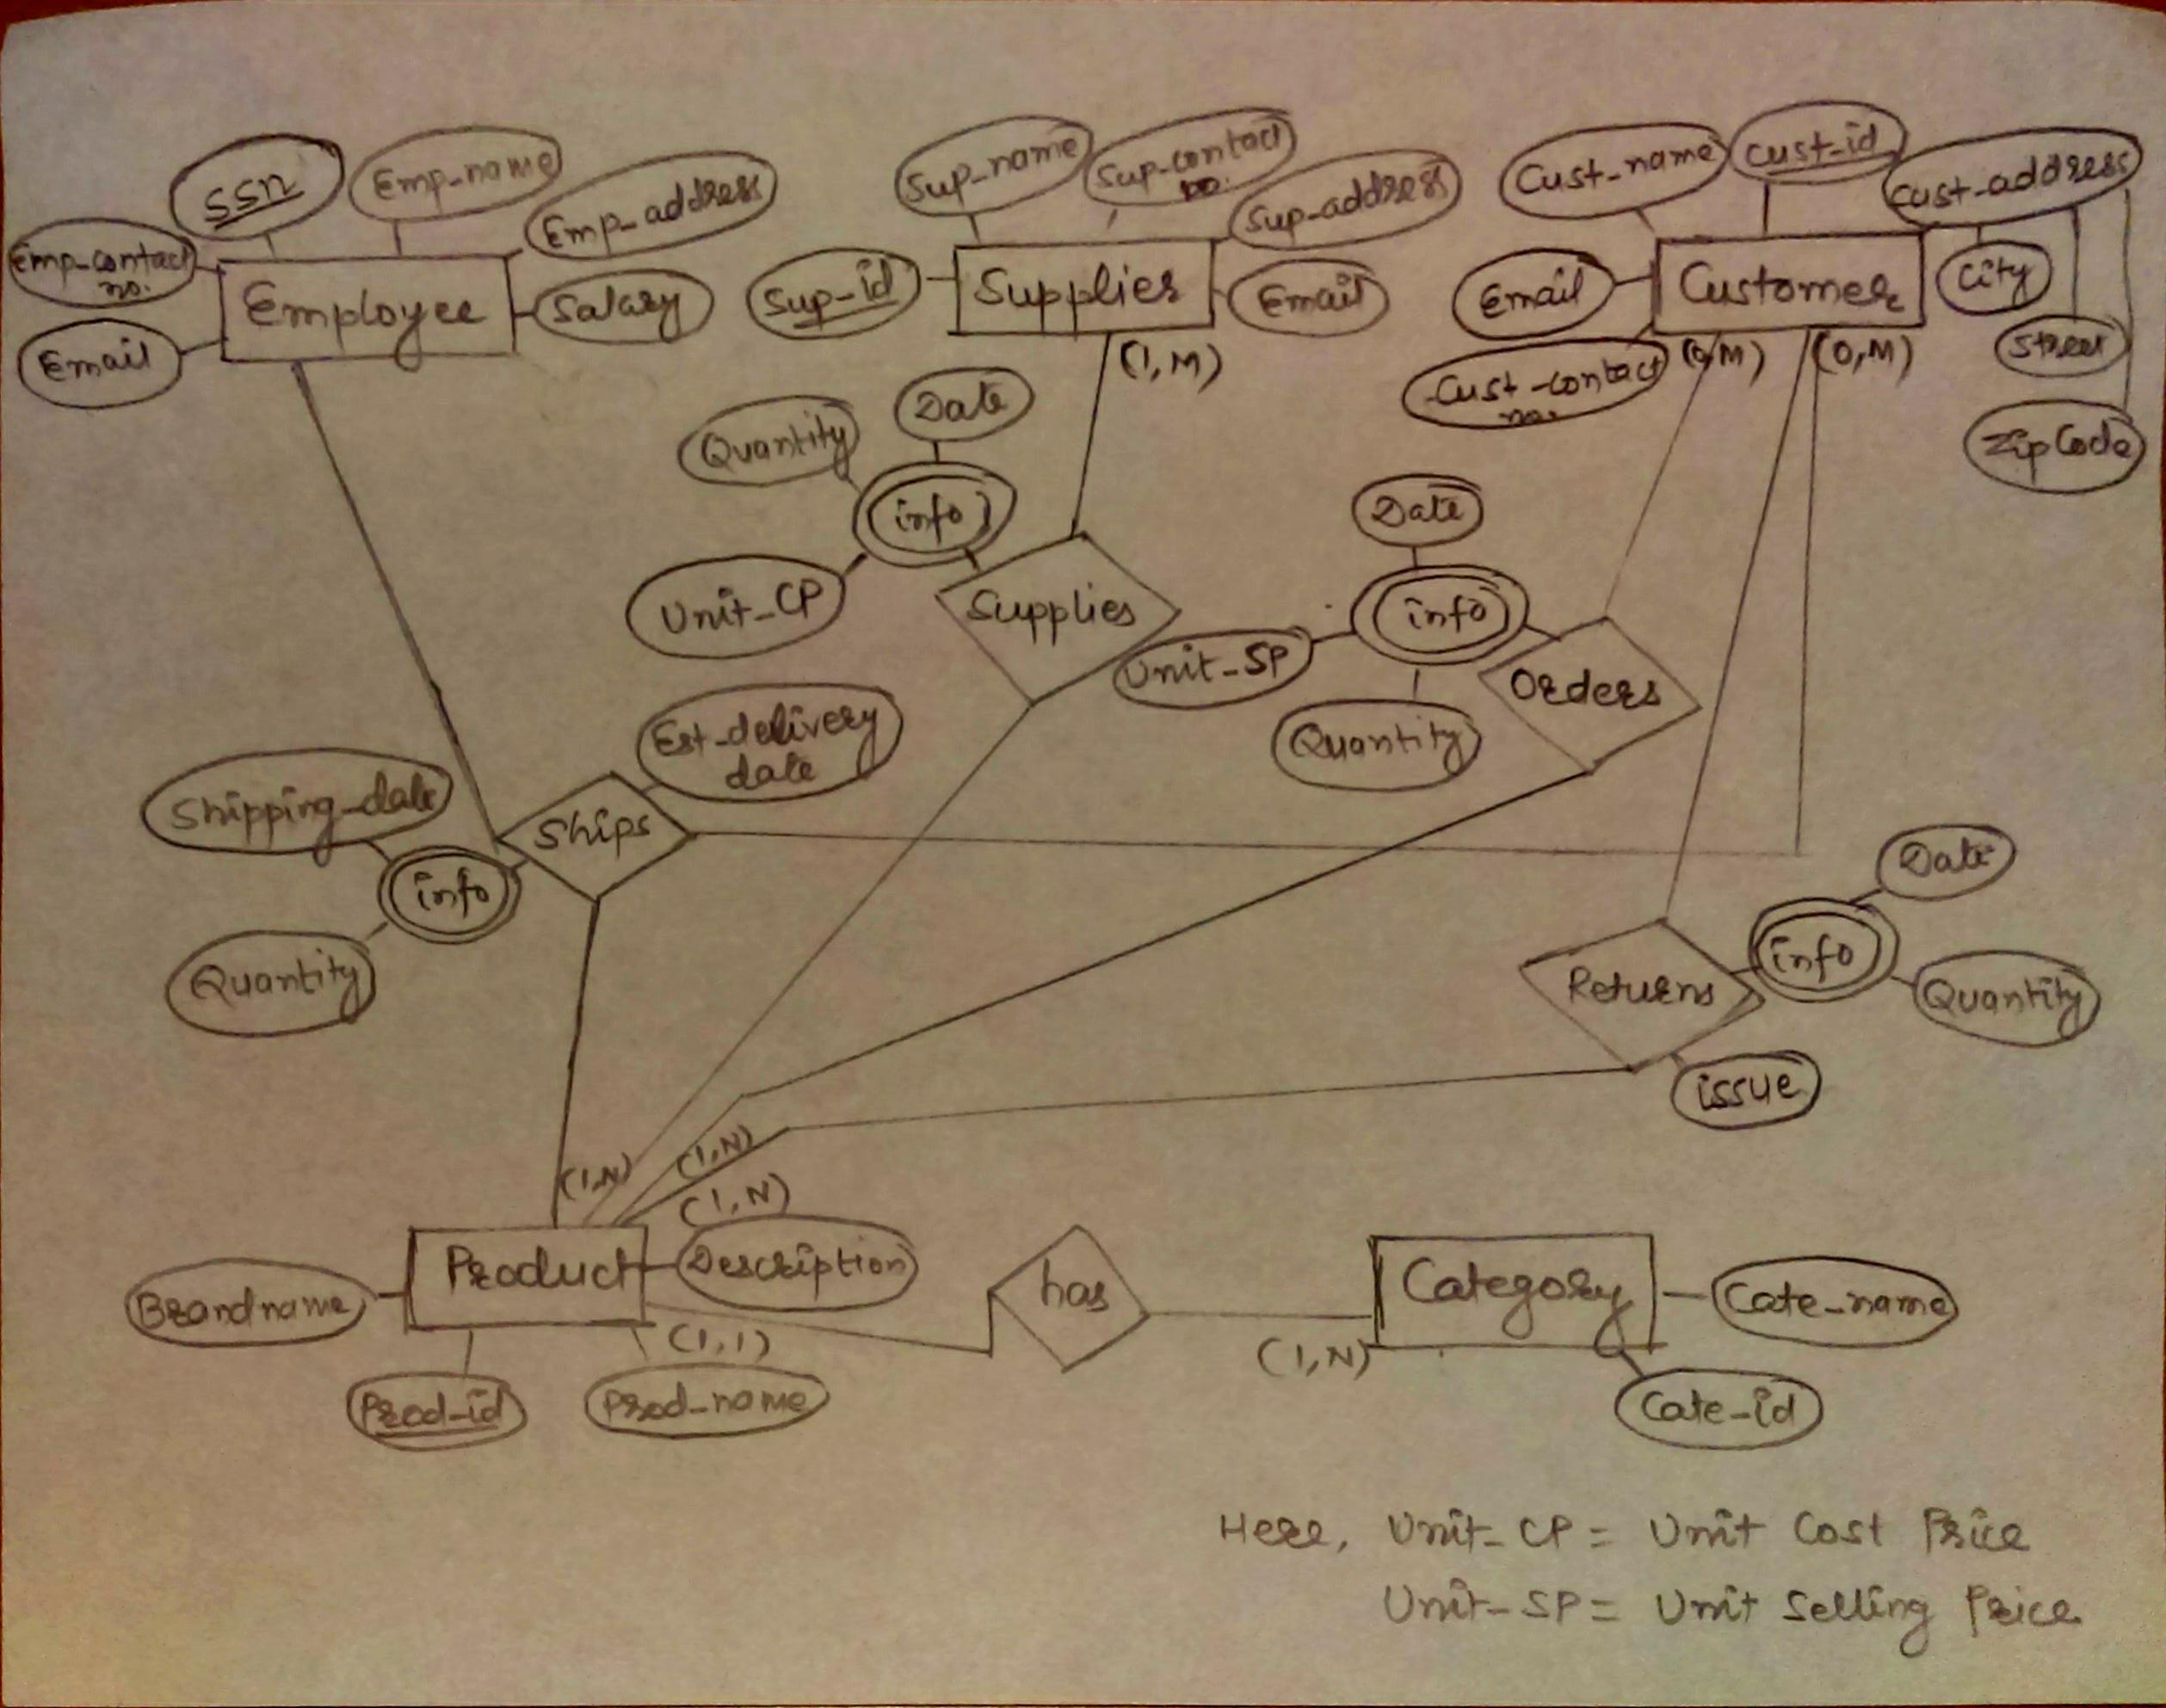 SSN
Emp-name
Emp-address
Emp-contact
no.
Employee
Salary
Email
Sup-name
Sup-contact
no.
Sup-address
Sup-id
Supplier
Email
(1,M)
Cust-name
Cust-id
Cust-address
Email
Customer
City
Street
ZipCode
Cust-contact
no.
(0,M)
(0,M)
Quantity
Date
info
Unit-CP
Supplies
Date
info
Unit-SP
Quantity
Orders
Est-delivery
date
Shipping-date
Ships
info
Quantity
Date
info
Returns
Quantity
issue
(1,N)
(1,N)
(1,N)
Product
Description
Brandname
(1,1)
Prod-id
Prod-name
has
(1,N)
Category
Cate-name
Cate-id
Here, Unit-CP = Unit Cost Price
Unit-SP = Unit Selling Price